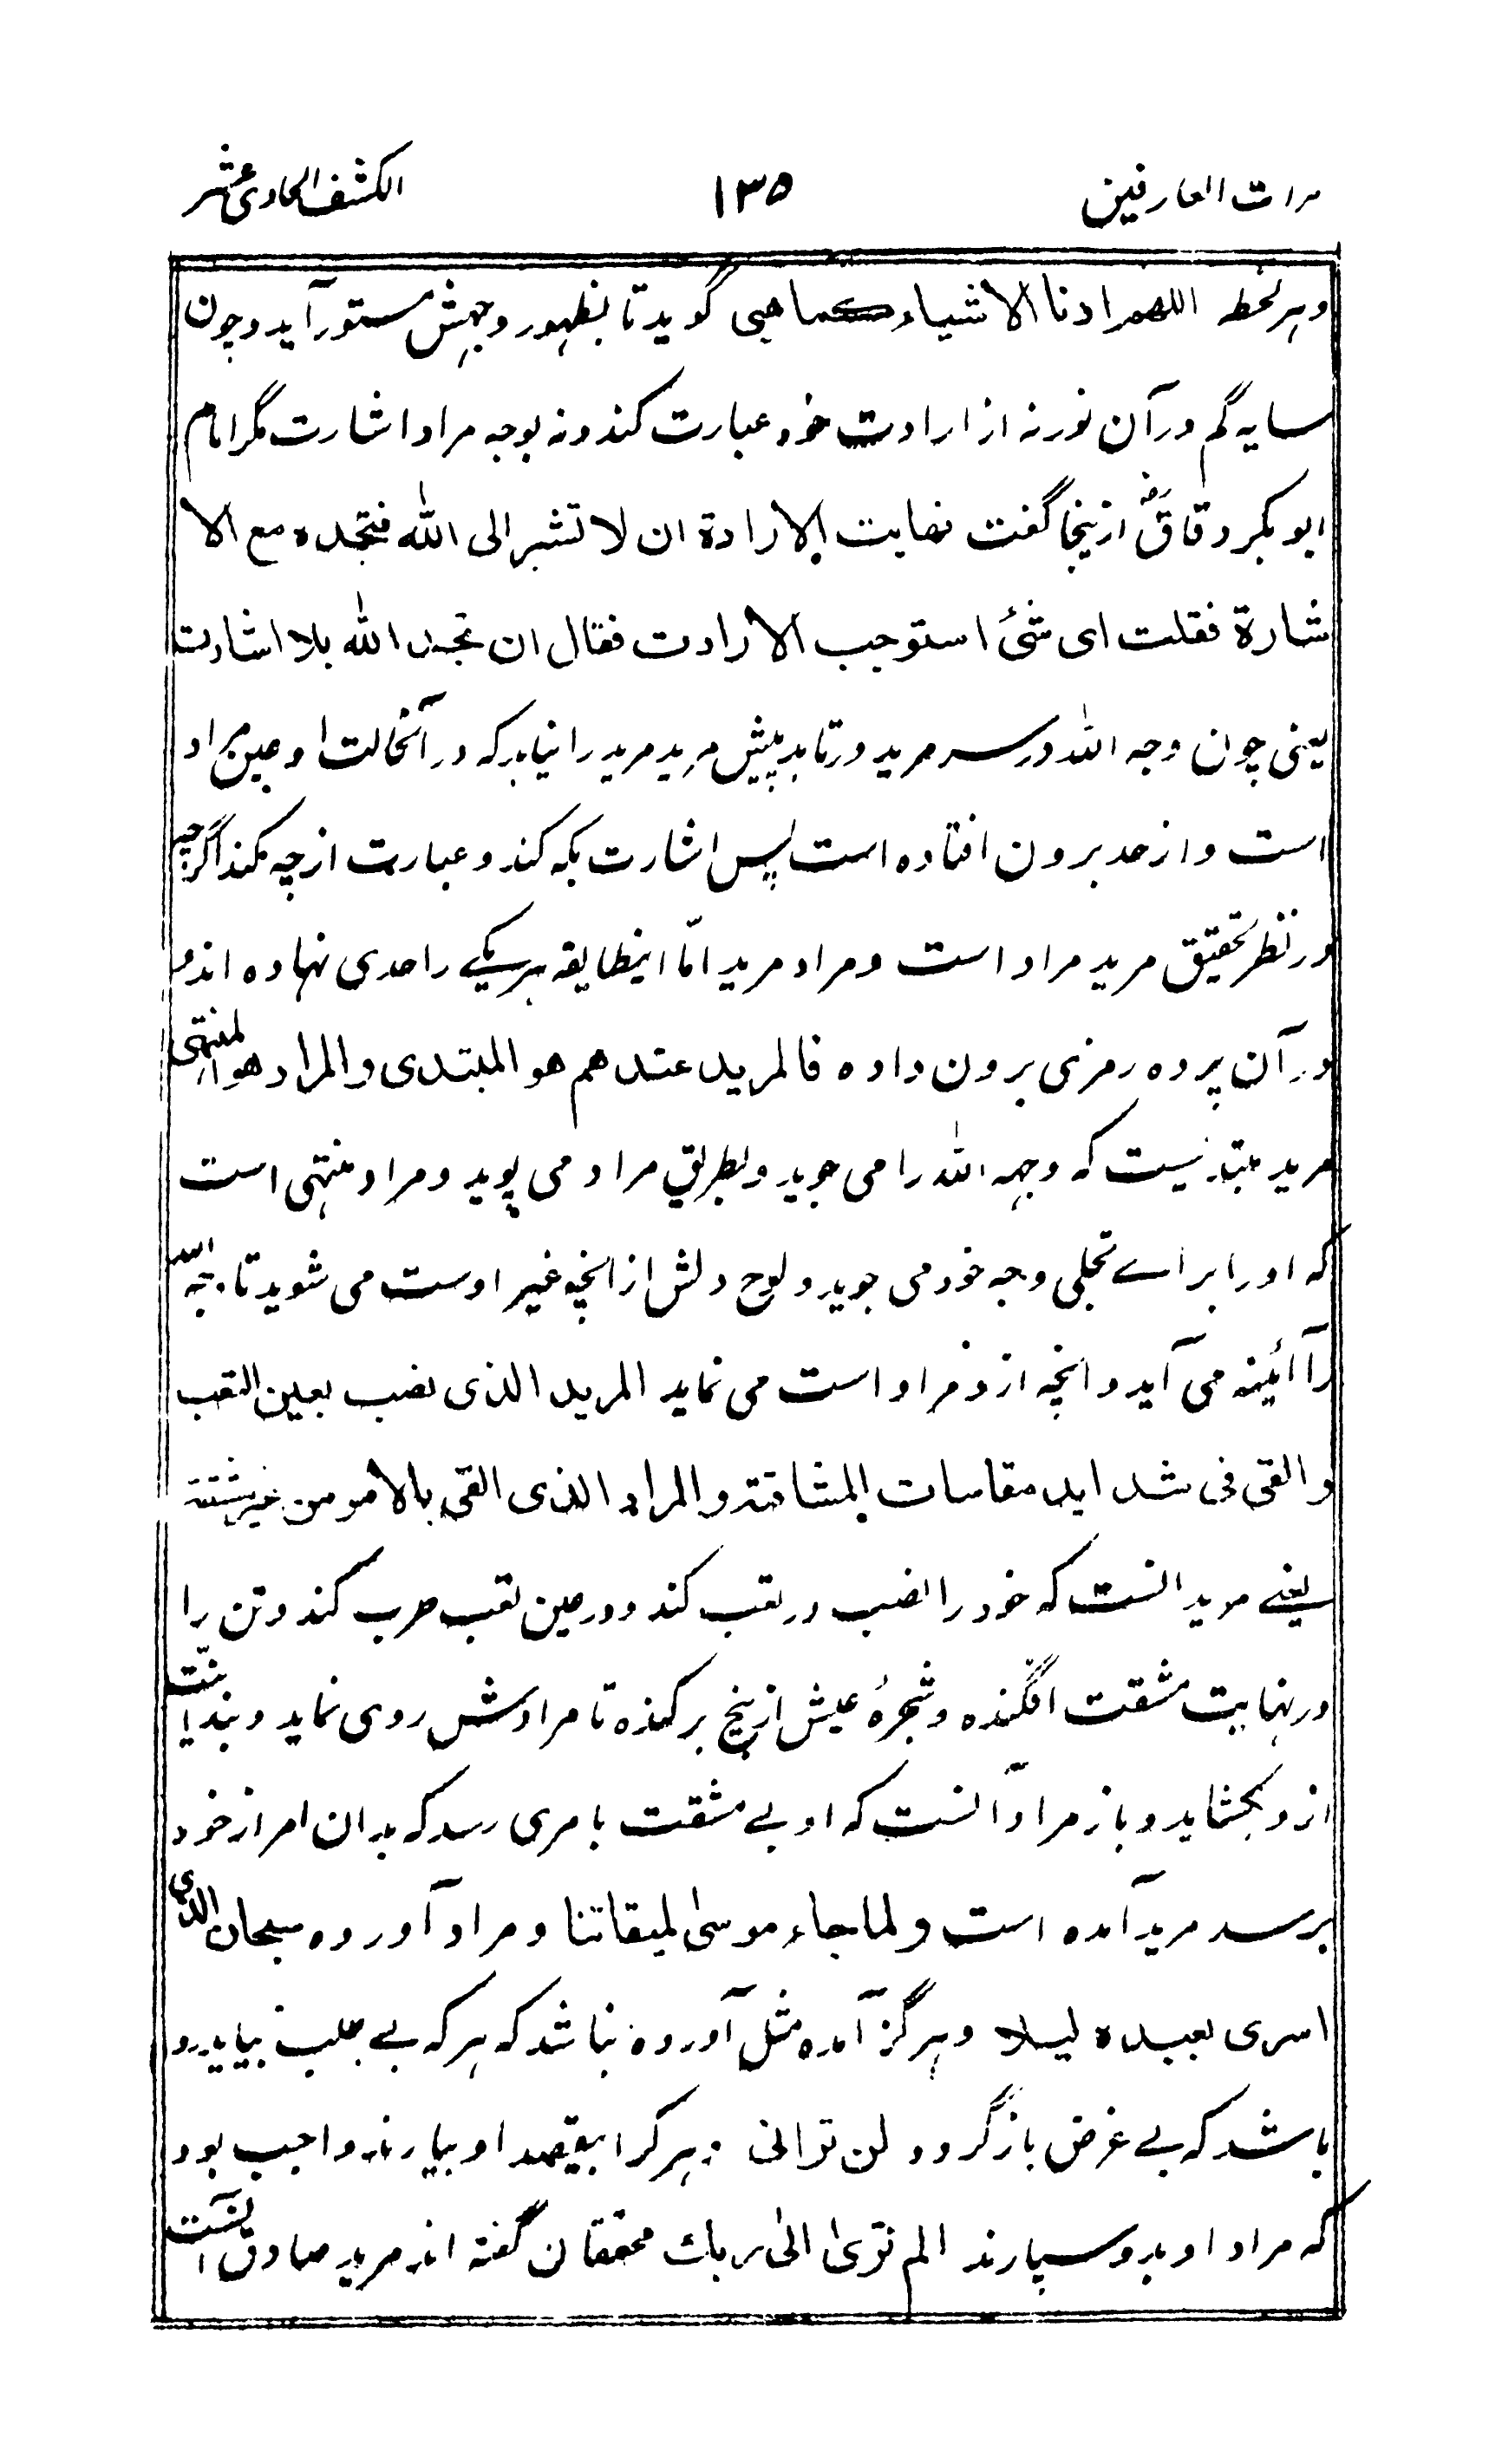 مرات العارفین ۱۳۵ الکشف الحادی عشر
وہر لحظہ اللھم ارنا الاشیاء کما ھی گوید تا بظہور وجہش مستور آید و چون
سایہ گم در آن نور نہ از ارادت خود عبارت کند و نہ بوجہ مراد اشارت مگر امام
ابو بکر دقاق رضہ ازینجا گفت نھایت الارادة ان لا تشیر الی الله فتجده مع الا
شارة فقلت ای شئ استوجب الارادت فقال ان تجد الله بلا اشارت
یعنی چون وجہ الله در سر مرید در تابد پیش مرید مرید را نیابد کہ در آنحالت او عین مراد
است و از حد برون افتاده است پس اشارت بکہ کند و عبارت از چہ کند اگرچہ
در نظر تحقیق مرید مراد است و مراد مرید امّا اینطایفہ ہر یکے را حدی نہاده اند و
در آن پرده رمزی برون داده فالمرید عندھم ھو المبتدی والمراد ھو المنتہی
مرید مبتدیست کہ وجہہ الله را می جوید و بطریق مراد می پوید و مراد منتہی است
کہ او را براے تجلی وجہ خود می جوید و لوح دلش از انچہ غیر اوست می شوید تا وجہ الله
را آئینہ می آید و انچہ ازو مراد است می نماید المرید الذی نصب بعین التعب
والقی فی شداید مقاسات المشاقة والمراد الذی القی بالامر من غیر مشقتہ
یعنے مرید آنست کہ خود را نصب در تعب کند و در عین تعب طرب کند و تن را
در نہایت مشقت افگنده و شجرۂ عیش از بیخ بر کنده تا مرادش روی نماید و بند انیّت
ازو بکشاید و باز مراد آنست کہ او بے مشقت بامری رسد کہ بدان امر از خود
برسد مرید آمده است ولما جاء موسیٰ لمیقاتنا و مراد آورده سبحان الذی
اسری بعبده لیلا و ہرگز آمده مثل آورده نباشد کہ ہر کہ بے طلب بیاید رو
باشد کہ بے غرض باز گردد لن ترانی و ہر کرا بیقصد او بیارند واجب بود
کہ مراد او بدو سپارند الم تریٰ الیٰ ربك محققان گفتہ اند مرید صادق آنست